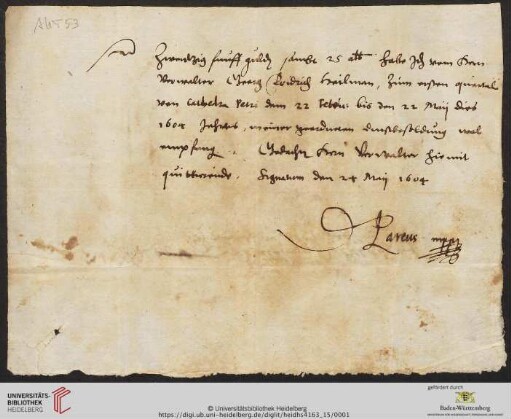 AHT 53
Zwendzig funff guld sambt 25 alb habe Ich vom Hern
Verwalter Georg Fridrich Heilman, zum ersten quartal
von Cathedra Petri dem 22 Febr: bis den 22 Maij dies
1604 Jahres, meiner geordneten dienstbesoldung wol
empfang. Gedachten Hern Verwalter hiemit
quittierende. Signatum den 24 Maij 1604
D Pareus mppr
UNIVERSITÄTS-
BIBLIOTHEK
HEIDELBERG
© Universitätsbibliothek Heidelberg
https://digi.ub.uni-heidelberg.de/diglit/heidhs4163_15/0001
gefördert durch
Baden-Württemberg